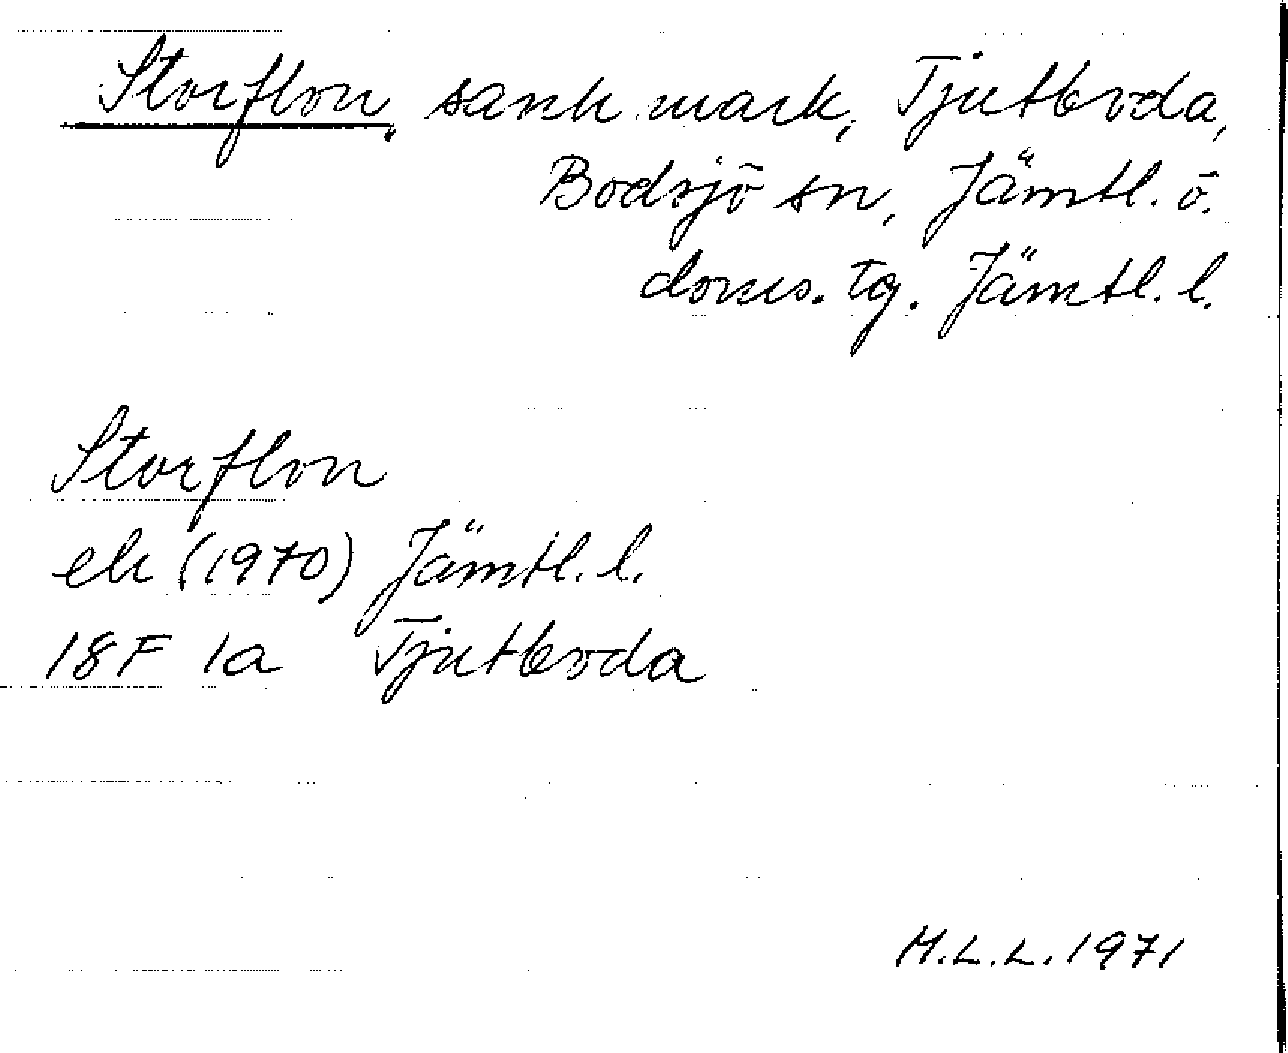 Storflon, sank mark, Tjutboda,
Bodsjö sn, Jämtl. ö.
doms. tg. Jämtl. l.
Storflon
ek (1970) Jämtl. l.
18F 1a Tjutboda
M.L.L. 1971